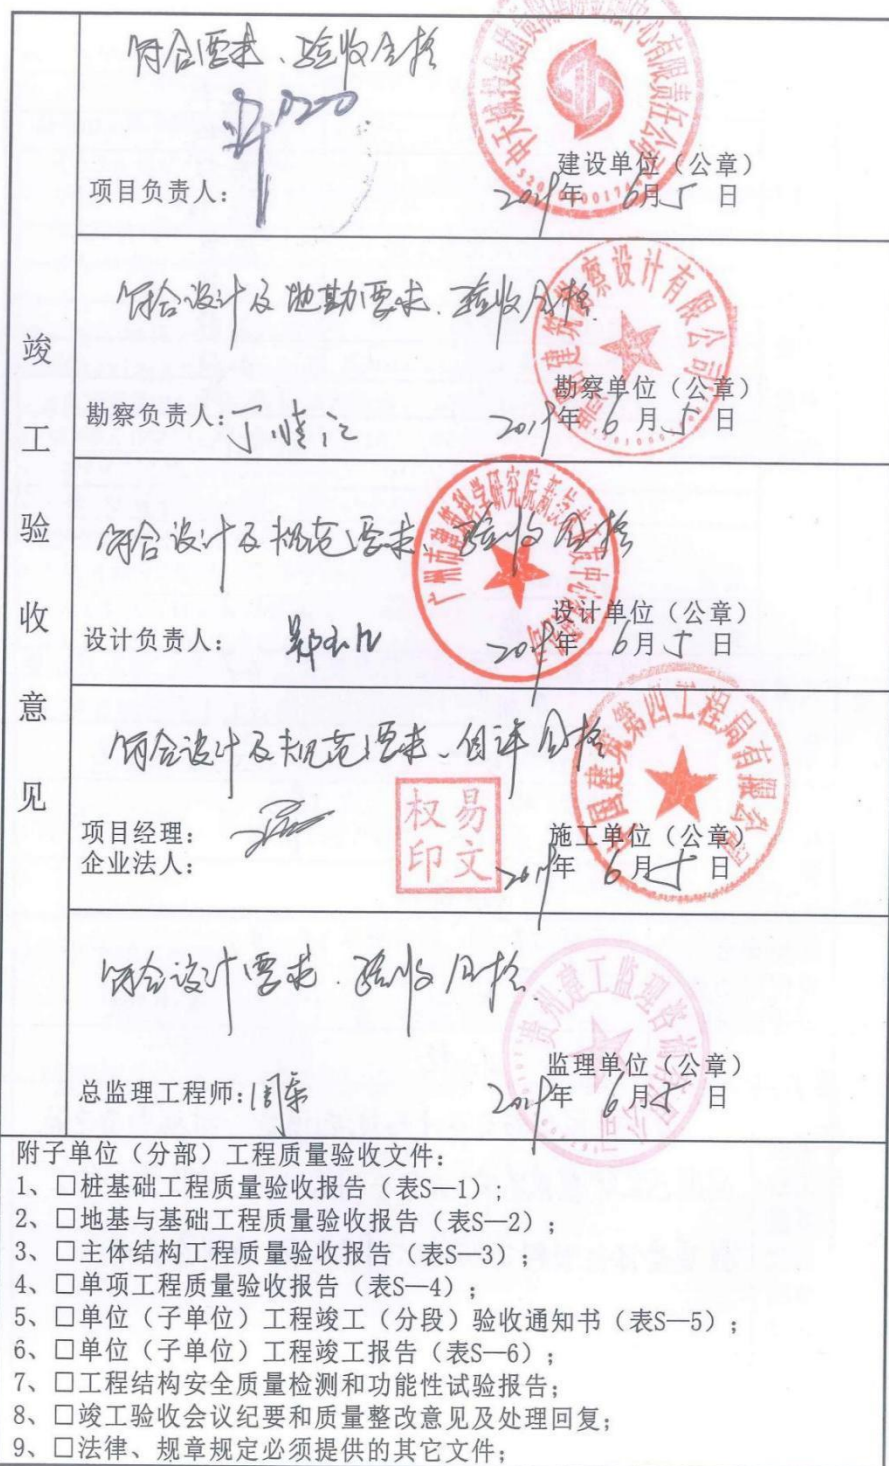 竣工验收意见
符合要求、验收合格
项目负责人：
建设单位（公章）
2019年 6月5 日
符合设计及地勘要求、验收合格.
勘察设计有限公司
勘察单位（公章）
勘察负责人：
2019年 6 月 5 日
符合设计及规范要求、验收合格
广州市建筑科学研究院
设计单位（公章）
设计负责人：
2019年 6月5 日
符合设计及规范要求、自评合格
中国建筑第四工程局有限公司
权易
印文
项目经理：
企业法人：
施工单位（公章）
2019年 6月5 日
符合设计要求．验收合格.
贵州建工监理咨询有限公司
监理单位（公章）
总监理工程师：
2019年 6月5 日
附子单位（分部）工程质量验收文件：
1、□桩基础工程质量验收报告（表S—1）；
2、□地基与基础工程质量验收报告（表S—2）；
3、□主体结构工程质量验收报告（表S—3）；
4、□单项工程质量验收报告（表S—4）；
5、□单位（子单位）工程竣工（分段）验收通知书（表S—5）；
6、□单位（子单位）工程竣工报告（表S—6）；
7、□工程结构安全质量检测和功能性试验报告；
8、□竣工验收会议纪要和质量整改意见及处理回复；
9、□法律、规章规定必须提供的其它文件；